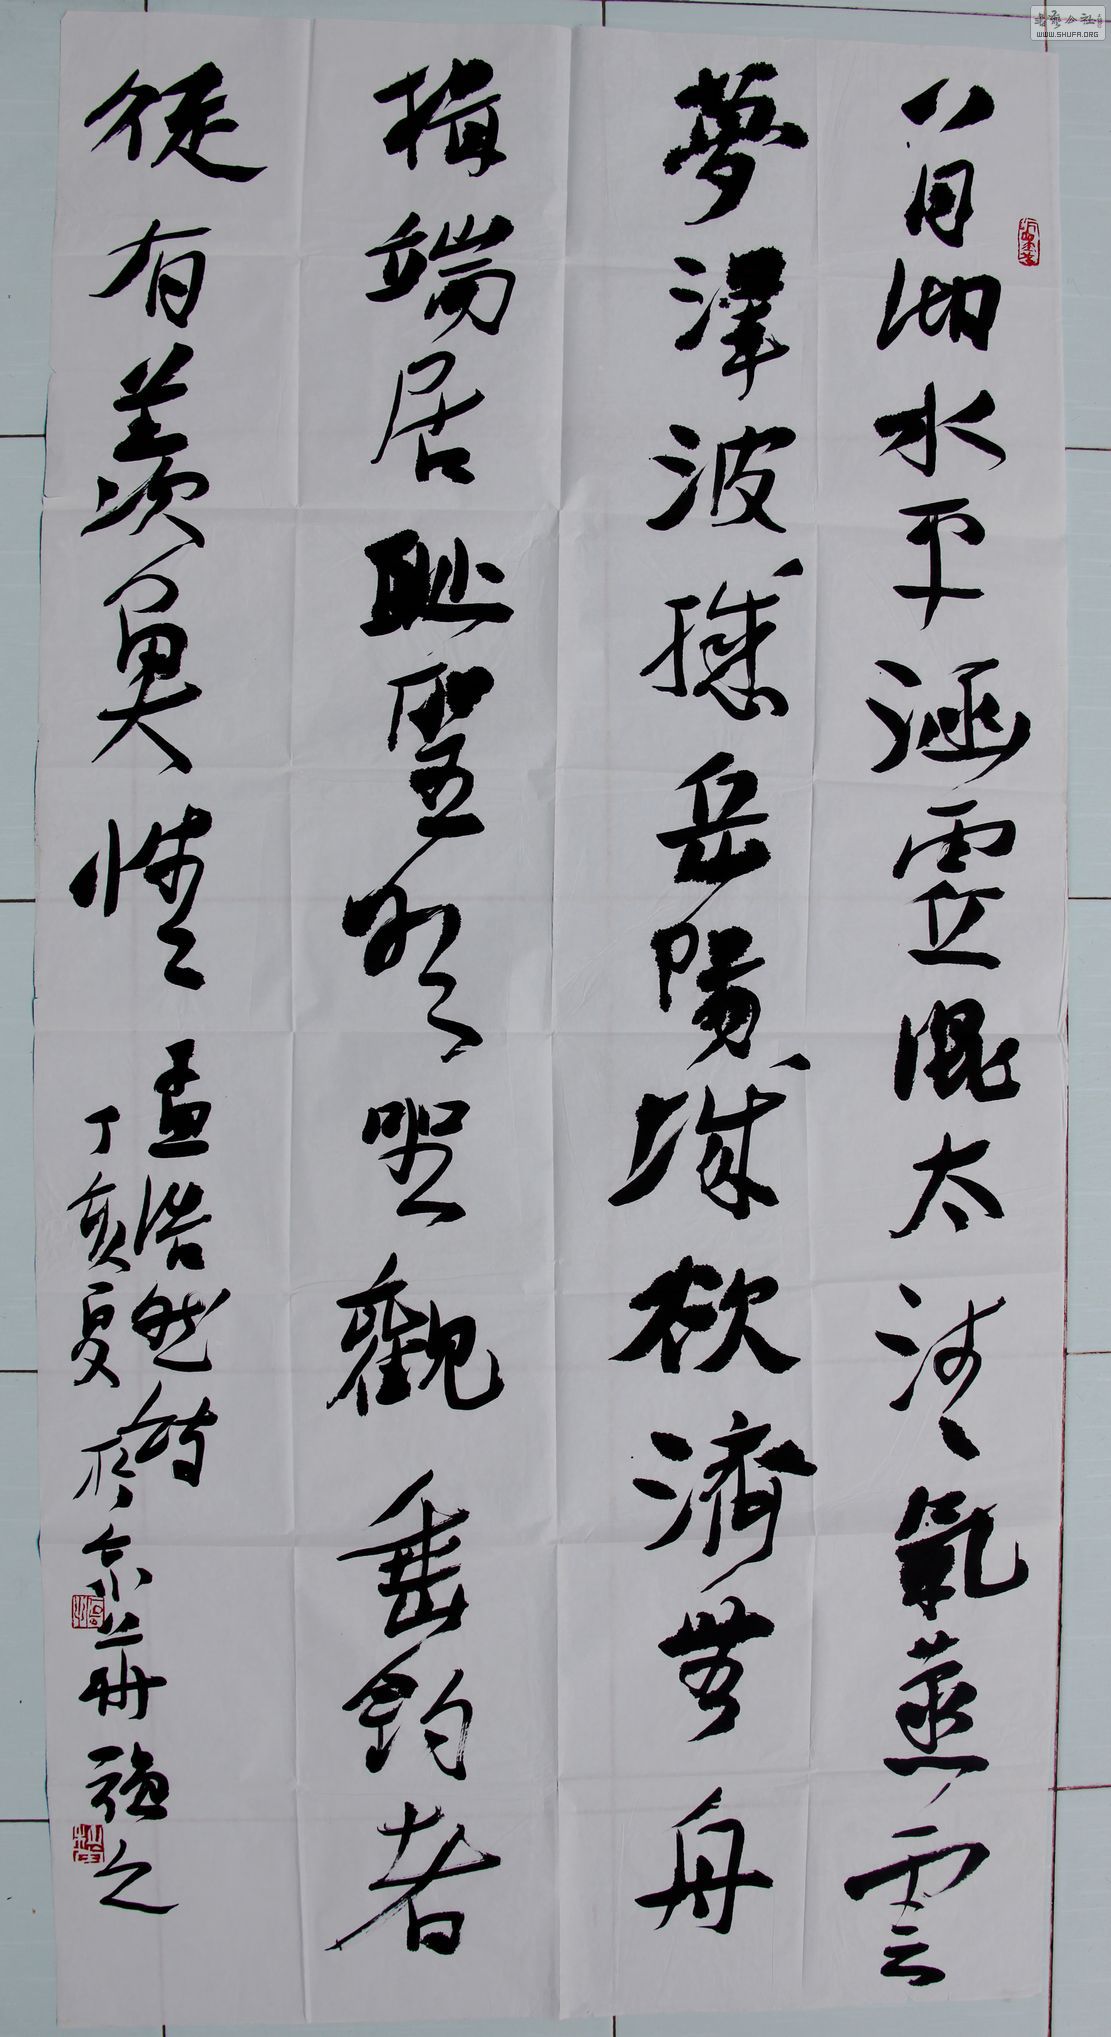 八月湖水平涵虛混太清氣蒸雲
夢澤波撼岳陽城欲濟無舟
楫端居恥聖明坐觀垂釣者
徒有羨魚情
孟浩然詩
丁亥夏於京華強之
书艺公社
WWW.SHUFA.ORG